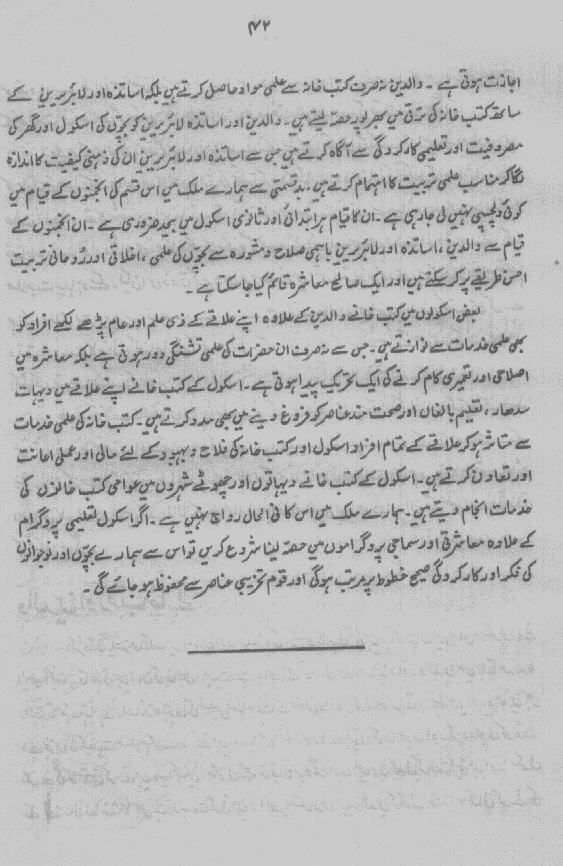 ۴۲
اجازت ہوتی ہے ۔ والدین نہ صرف کتب خانہ سے علمی مواد حاصل کرتے ہیں بلکہ اساتذہ اور لائبریرین کے
ساتھ کتب خانہ کی ترقی میں بھر پور حصہ لیتے ہیں ۔ والدین اور اساتذہ لائبریرین کو بچّوں کی اسکول اور گھر کی
مصروفیت اور تعلیمی کارکردگی سے آگاہ کرتے ہیں جس سے اساتذہ اور لائبریرین ان کی ذہنی کیفیت کا اندازہ
لگا کر مناسب علمی تربیت کا اہتمام کرتے ہیں ۔ بد قسمتی سے ہمارے ملک میں اس قسم کی انجمنوں کے قیام میں
کوئی دلچسپی نہیں لی جارہی ہے ۔ ان کا قیام ہر ابتدائی اور ثانوی اسکول میں بیحد ضروری ہے ۔ ان انجمنوں کے
قیام سے والدین ، اساتذہ اور لائبریرین باہمی صلاح و مشورہ سے بچّوں کی علمی ، اخلاقی اور روحانی تربیت
احسن طریقے پر کرسکتے ہیں اور ایک صالح معاشرہ قائم کیا جاسکتا ہے ۔
بعض اسکولوں میں کتب خانے والدین کے علاوہ اپنے علاقے کے ذی علم اور عام پڑھے لکھے افراد کو
بھی علمی خدمات سے نوازتے ہیں ۔ جس سے نہ صرف ان حضرات کی علمی تشنگی دور ہوتی ہے بلکہ معاشرہ میں
اصلاحی اور تعمیری کام کرنے کی ایک تحریک پیدا ہوتی ہے ۔ اسکول کے کتب خانے اپنے علاقے میں دیہات
سدھار ، تعلیم بالغان اور صحت مند عناصر کو فروغ دینے میں بھی مدد کرتے ہیں ۔ کتب خانہ کی علمی خدمات
سے متاثر ہو کر علاقے کے تمام افراد اسکول اور کتب خانہ کی فلاح و بہبود کے لئے مالی اور عملی اعانت
اور تعاون کرتے ہیں ۔ اسکول کے کتب خانے دیہاتوں اور چھوٹے شہروں میں عوامی کتب خانوں کی
خدمات انجام دیتے ہیں ۔ ہمارے ملک میں اس کا فی الحال رواج نہیں ہے ۔ اگر اسکول تعلیمی پروگرام
کے علاوہ معاشرتی اور سماجی پروگراموں میں حصہ لینا شروع کریں تو اس سے ہمارے بچّوں اور نوجوانوں
کی فکر اور کارکردگی صحیح خطوط پر مرتب ہوگی اور قوم تخریبی عناصر سے محفوظ ہو جائے گی ۔